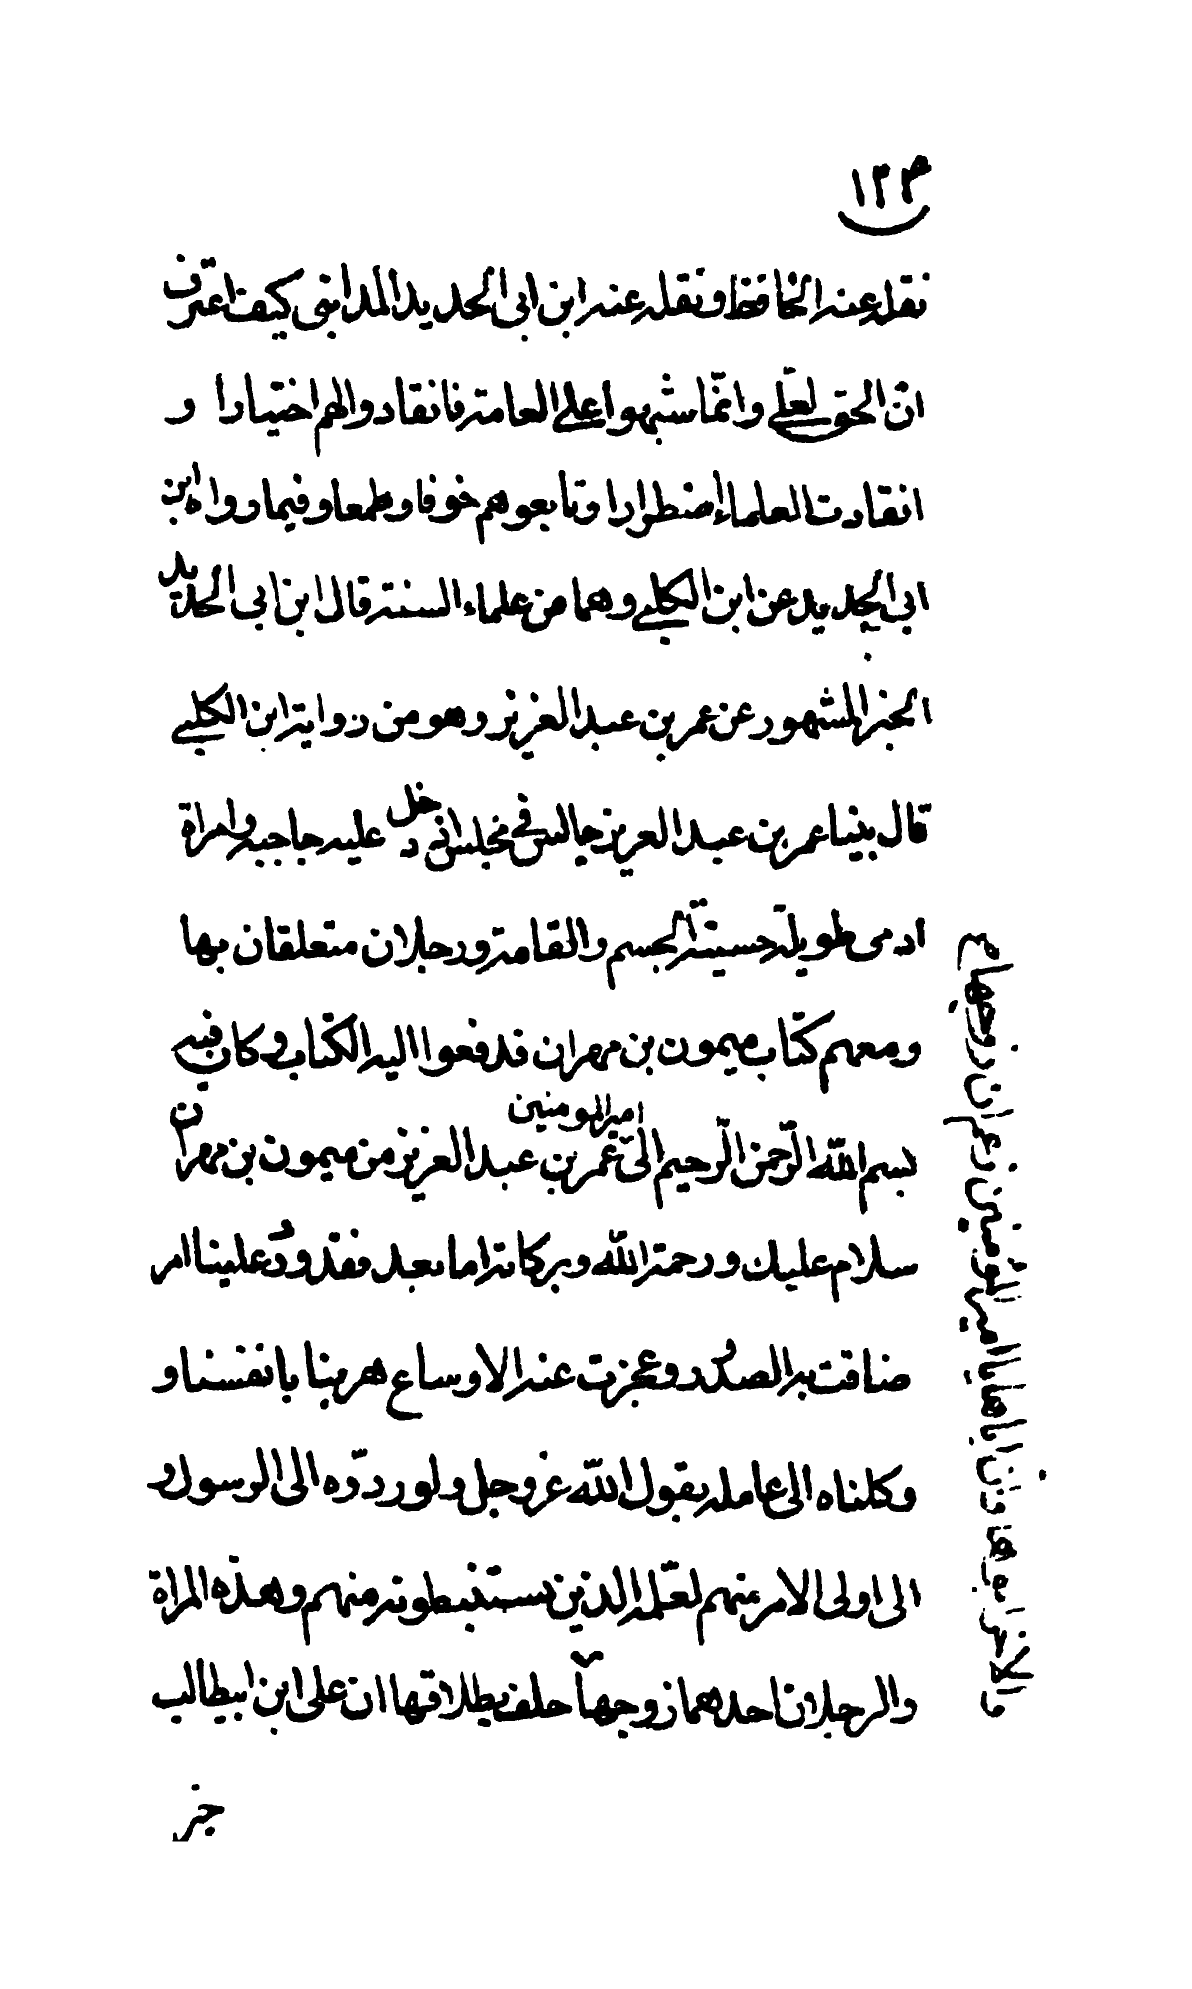 ١٢٣
نقل عنه الحافظ ونقل عنه ابن ابى الحديد المدائنى كيف اعترف
انّ الحق لعلّى وانمّا شبهوا على العامة فانقادوا لهم اختيارا و
انقادت العلماء اضطرارا وتابعوهم خوفا وطمعا وفيما رواه ابن
ابى الحديد عن ابن الكلبى وهما من علماء السنة قال ابن ابى الحديد
الخبر المشهور عن عمر بن عبد العزيز وهو من رواية ابن الكلبى
قال بينا عمر بن عبد العزيز جالس فى مجلس دخل عليه حاجبه وامراة
ادمى طويلة حسينة الجسم والقامة ورجلان متعلقان بها
ومعهم كتاب ميمون بن مهران قد فعوا اليه الكتاب وكان فيه
بسم الله الرّحمن الرّحيم الى امير المومنين عمر بن عبد العزيز من ميمون بن مهران
سلام عليك ورحمة الله وبركاته اما بعد فقد ورد علينا امر
ضاقت به الصدر وعجزت عنه الاوساع هربنا بانفسنا و
وكلناه الى عامله بقول الله عز وجل ولو ردّوه الى الرسول و
الى اولى الامر منهم لعلمه الذين يستنبطونه منهم وهذه المراة
والرجلان احدهما زوجها حلف بطلاقها ان على ابن ابيطالب
والاخر ابوها وان اباها يا امير المؤمنين زعم ان زوجها ع
خير